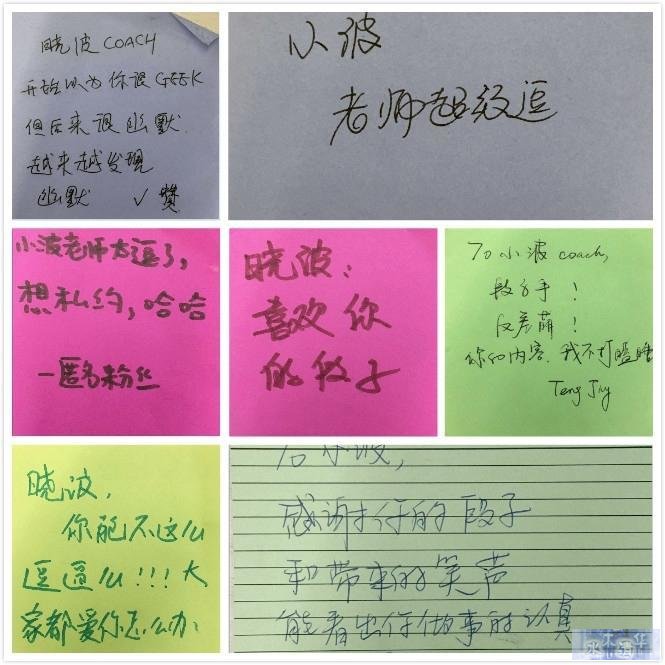 晓波 COACH
开始以为你很GEEK
但后来很幽默.
越来越发现
幽默 ✓赞
小波
老师超级逗
小波老师太逗了,
想私约,哈哈
—匿名粉丝
晓波:
喜欢你
的段子
To 小波 coach,
段子手!
反差萌!
你的内容,我不打瞌睡
Teng Jay
晓波,
你能不这么
逗逼么!!!大
家都爱你怎么办?
To 小波,
感谢你的段子
和带来的笑声
能看出你做事的认真